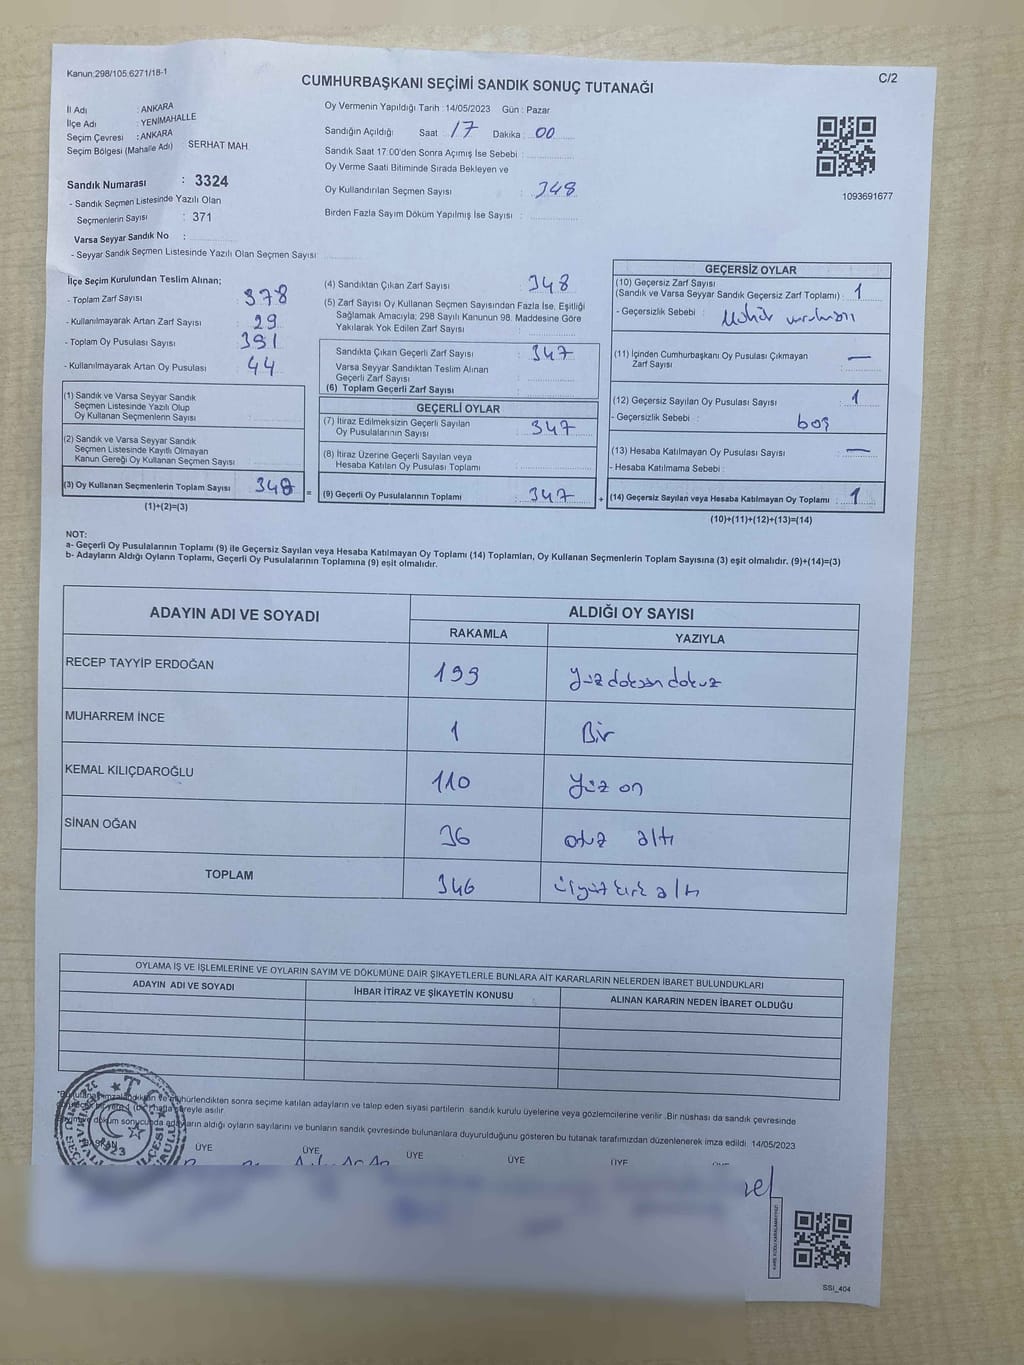 Kanun:298/105.6271/18-1
C/2
CUMHURBAŞKANI SEÇİMİ SANDIK SONUÇ TUTANAĞI
İl Adı : ANKARA
İlçe Adı : YENİMAHALLE
Seçim Çevresi : ANKARA
Seçim Bölgesi (Mahalle Adı) SERHAT MAH.
Sandık Numarası : 3324
- Sandık Seçmen Listesinde Yazılı Olan
Seçmenlerin Sayısı : 371
Varsa Seyyar Sandık No :
- Seyyar Sandık Seçmen Listesinde Yazılı Olan Seçmen Sayısı
Oy Vermenin Yapıldığı Tarih : 14/05/2023 Gün : Pazar
Sandığın Açıldığı Saat 17 Dakika : 00
Sandık Saat 17:00'den Sonra Açımış İse Sebebi :
Oy Verme Saati Bitiminde Sırada Bekleyen ve
Oy Kullandırılan Seçmen Sayısı : 348
Birden Fazla Sayım Döküm Yapılmış İse Sayısı :
1093691677
İlçe Seçim Kurulundan Teslim Alınan;
- Toplam Zarf Sayısı 378
- Kullanılmayarak Artan Zarf Sayısı 29
- Toplam Oy Pusulası Sayısı 391
- Kullanılmayarak Artan Oy Pusulası 44
(1) Sandık ve Varsa Seyyar Sandık
Seçmen Listesinde Yazılı Olup
Oy Kullanan Seçmenlerin Sayısı
(2) Sandık ve Varsa Seyyar Sandık
Seçmen Listesinde Kayıtlı Olmayan
Kanun Gereği Oy Kullanan Seçmen Sayısı
(3) Oy Kullanan Seçmenlerin Toplam Sayısı 348
(1)+(2)=(3)
(4) Sandıktan Çıkan Zarf Sayısı : 348
(5) Zarf Sayısı Oy Kullanan Seçmen Sayısından Fazla İse, Eşitliği
Sağlamak Amacıyla; 298 Sayılı Kanunun 98. Maddesine Göre
Yakılarak Yok Edilen Zarf Sayısı :
Sandıkta Çıkan Geçerli Zarf Sayısı : 347
Varsa Seyyar Sandıktan Teslim Alınan
Geçerli Zarf Sayısı
(6) Toplam Geçerli Zarf Sayısı
GEÇERLİ OYLAR
(7) İtiraz Edilmeksizin Geçerli Sayılan
Oy Pusulalarının Sayısı : 347
(8) İtiraz Üzerine Geçerli Sayılan veya
Hesaba Katılan Oy Pusulası Toplamı
= (9) Geçerli Oy Pusulalarının Toplamı : 347 +
GEÇERSİZ OYLAR
(10) Geçersiz Zarf Sayısı
(Sandık ve Varsa Seyyar Sandık Geçersiz Zarf Toplamı) : 1
- Geçersizlik Sebebi : Mühür vurulması
(11) İçinden Cumhurbaşkanı Oy Pusulası Çıkmayan
Zarf Sayısı : —
(12) Geçersiz Sayılan Oy Pusulası Sayısı : 1
- Geçersizlik Sebebi : boş
(13) Hesaba Katılmayan Oy Pusulası Sayısı : —
- Hesaba Katılmama Sebebi :
(14) Geçersiz Sayılan veya Hesaba Katılmayan Oy Toplamı : 1
(10)+(11)+(12)+(13)=(14)
NOT:
a- Geçerli Oy Pusulalarının Toplamı (9) ile Geçersiz Sayılan veya Hesaba Katılmayan Oy Toplamı (14) Toplamları, Oy Kullanan Seçmenlerin Toplam Sayısına (3) eşit olmalıdır. (9)+(14)=(3)
b- Adayların Aldığı Oyların Toplamı, Geçerli Oy Pusulalarının Toplamına (9) eşit olmalıdır.
ADAYIN ADI VE SOYADI
ALDIĞI OY SAYISI
RAKAMLA YAZIYLA
RECEP TAYYİP ERDOĞAN 199 yüzdoksan dokuz
MUHARREM İNCE 1 Bir
KEMAL KILIÇDAROĞLU 110 yüz on
SİNAN OĞAN 36 otuz altı
TOPLAM 346 üçyüz kırk altı
OYLAMA İŞ VE İŞLEMLERİNE VE OYLARIN SAYIM VE DÖKÜMÜNE DAİR ŞİKAYETLERLE BUNLARA AİT KARARLARIN NELERDEN İBARET BULUNDUKLARI
ADAYIN ADI VE SOYADI İHBAR İTİRAZ VE ŞİKAYETİN KONUSU ALINAN KARARIN NEDEN İBARET OLDUĞU
mühürlendikten sonra seçime katılan adayların ve talep eden siyasi partilerin sandık kurulu üyelerine veya gözlemcilerine verilir .Bir nüshası da sandık çevresinde
hafta süreyle asılır.
döküm sonucunda adayların aldığı oyların sayılarını ve bunların sandık çevresinde bulunanlara duyurulduğunu gösteren bu tutanak tarafımızdan düzenlenerek imza edildi. 14/05/2023
BAŞKAN ÜYE ÜYE ÜYE ÜYE ÜYE
SSI_404